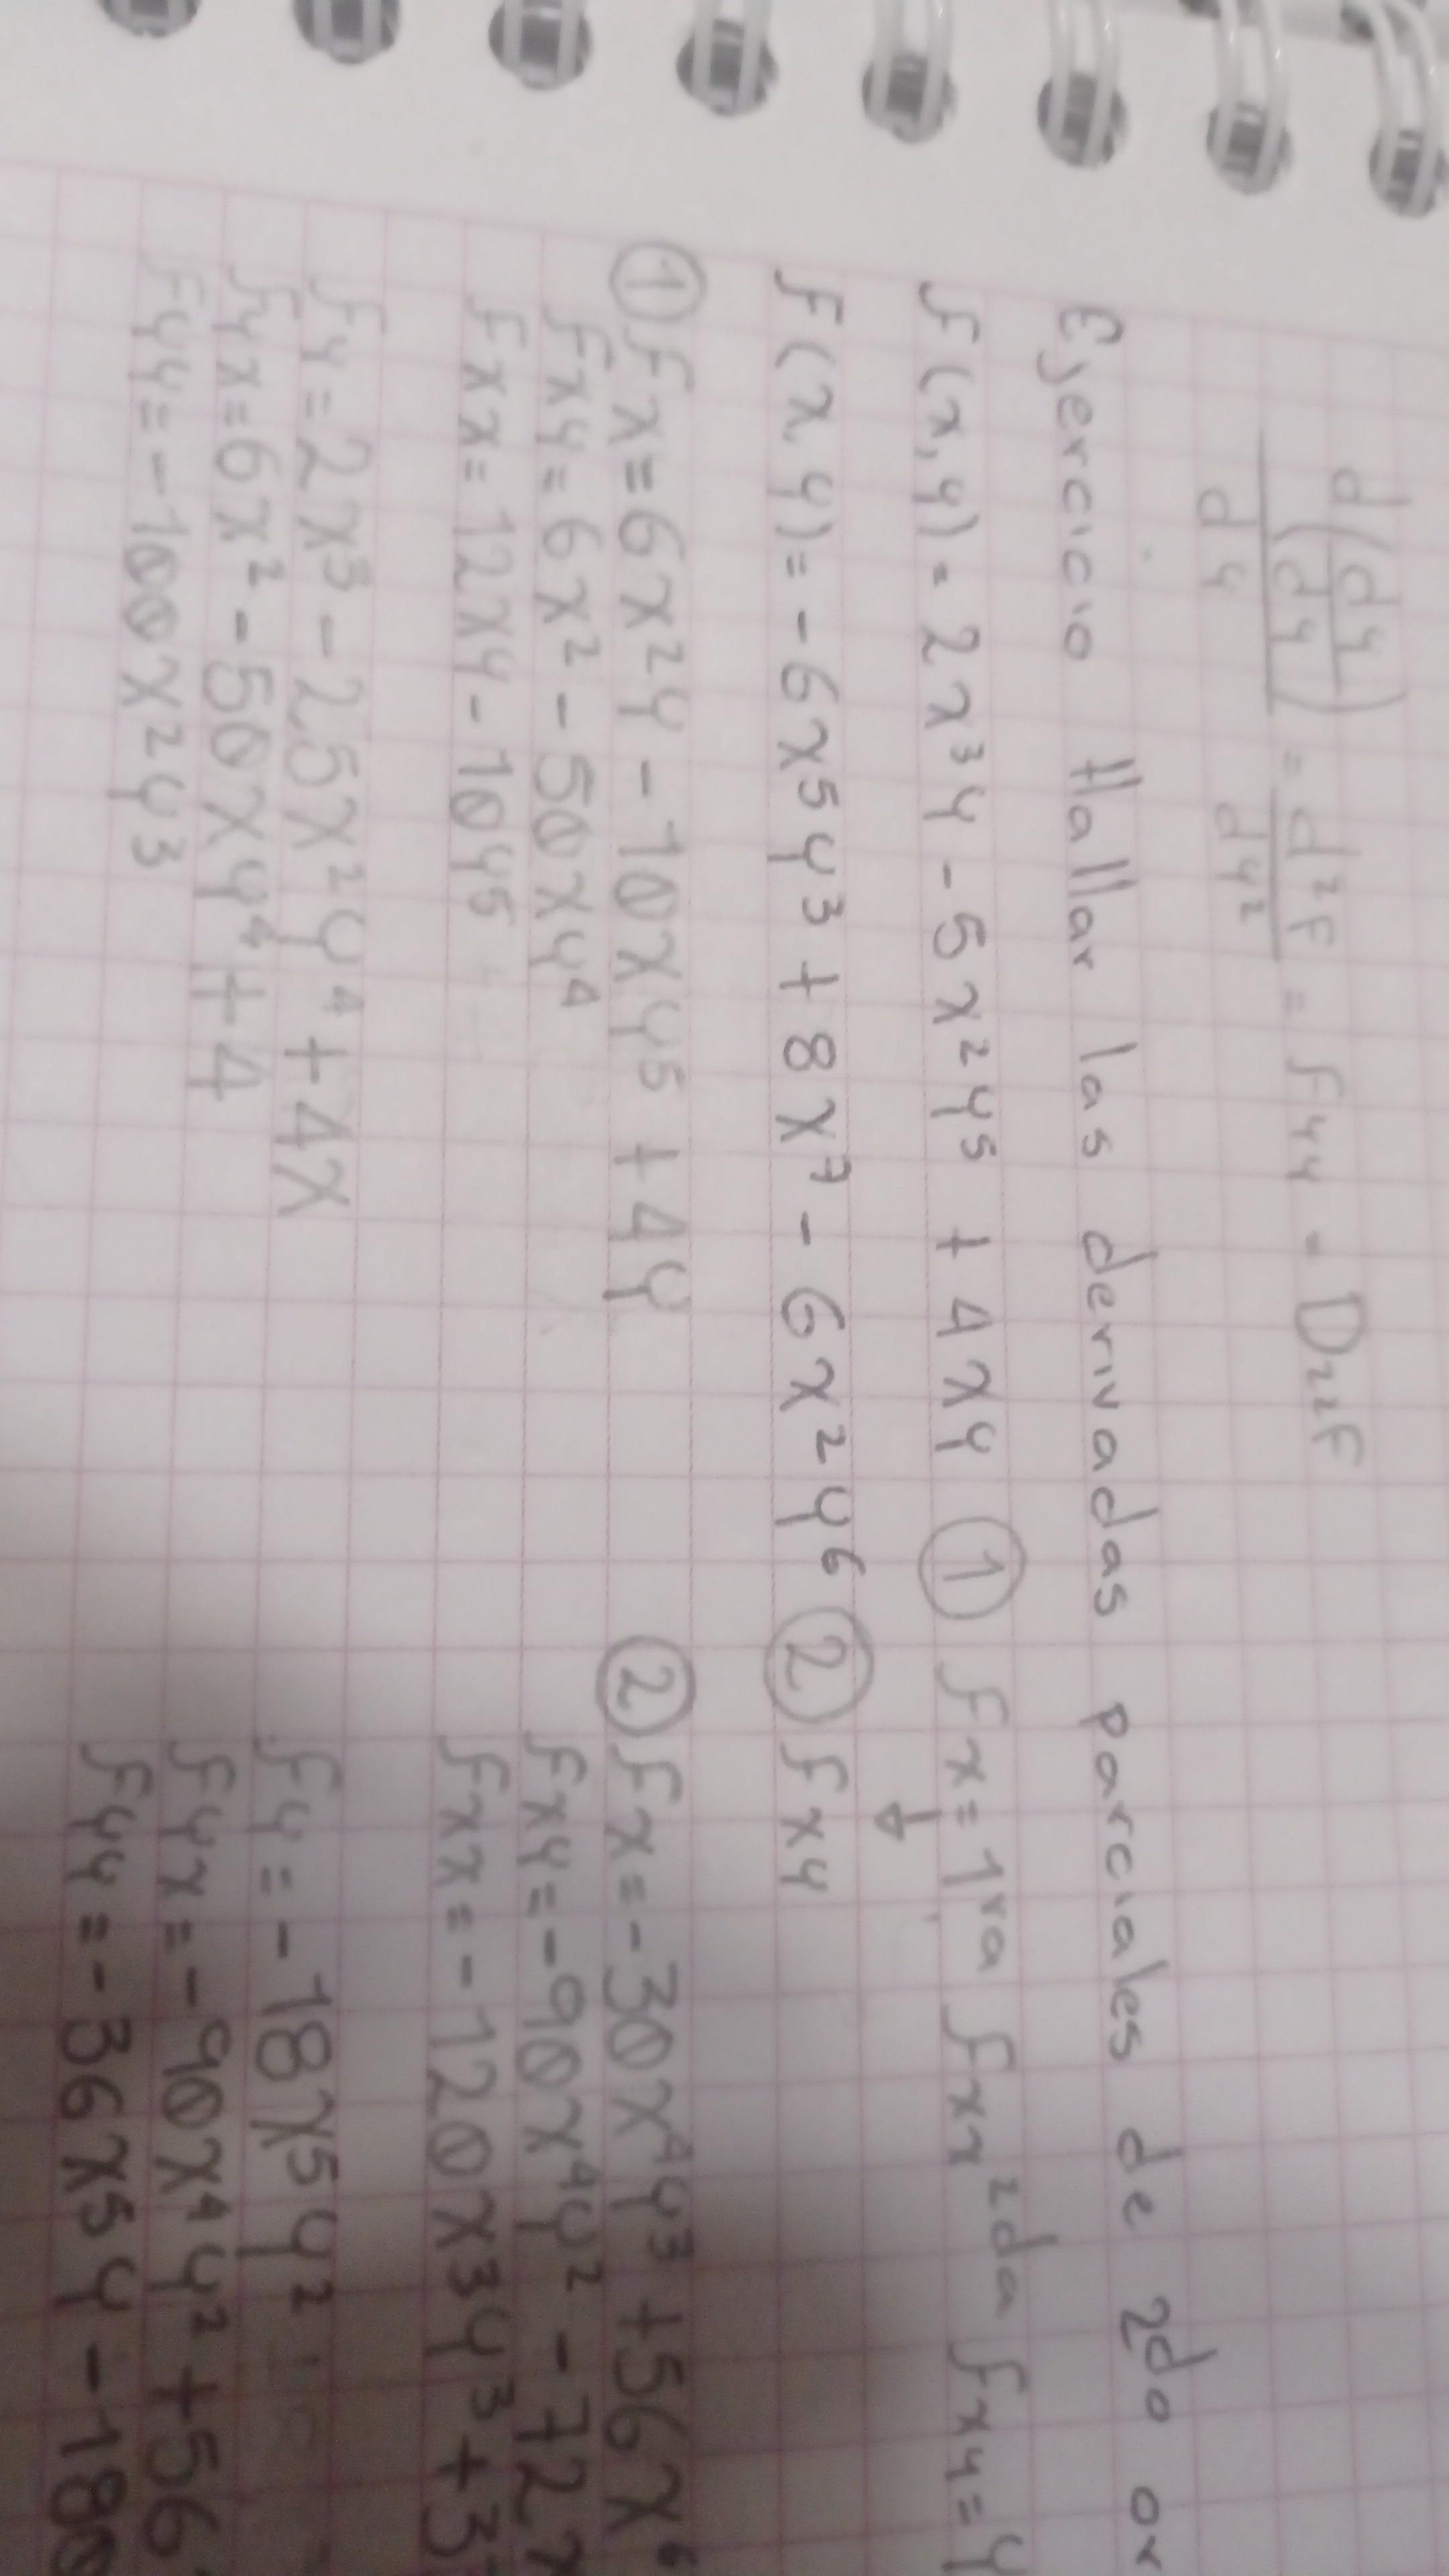 d(dy/dy)/dy = d²F/dy² = Fyy = D₂₂F
Ejercicio Hallar las derivadas parciales de 2do or
F(x,y) = 2x³y - 5x²y⁵ + 4xy ① Fx = 1ra Fxx 2da Fxy = y
F(x,y) = -6x⁵y³ + 8x⁷ - 6x²y⁶ ② Fxy
① Fx = 6x²y - 10xy⁵ + 4y
Fxy = 6x² - 50xy⁴
Fxx = 12xy - 10y⁵
Fy = 2x³ - 25x²y⁴ + 4x
Fyx = 6x² - 50xy⁴ + 4
Fyy = -100x²y³
② Fx = -30x⁴y³ + 56x⁶
Fxy = -90x⁴y² - 72x
Fxx = -120x³y³ + 3
Fy = -18x⁵y²
Fyx = -90x⁴y² + 56
Fyy = -36x⁵y - 180